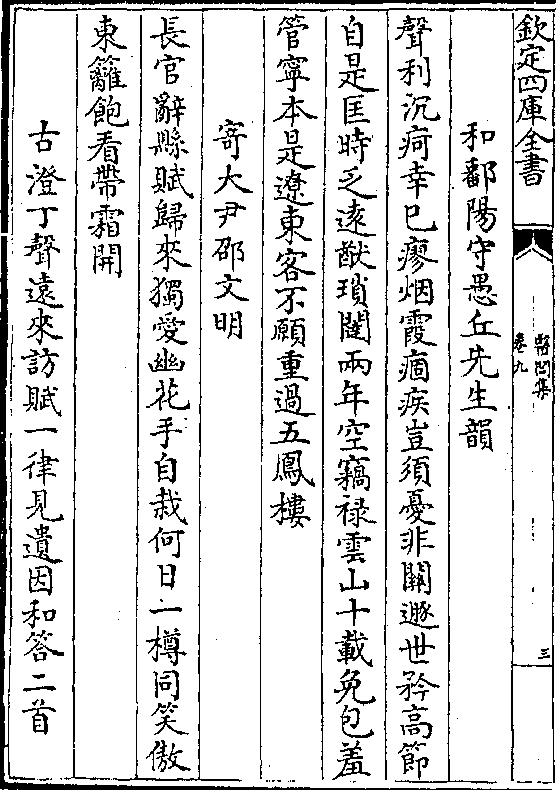 欽定四庫全書
醫閭集
卷九
三
和鄱陽守愚丘先生韻
聲利沉疴幸已瘳烟霞痼疾豈須憂非關遯世矜高節
自是匡時乏遠猷瑣闥兩年空竊禄雲山十載免包羞
管寧本是遼東客不願重過五鳳樓
寄大尹邵文明
長官辭縣賦歸來獨愛幽花手自栽何日一樽同笑傲
東籬飽看帶霜開
古澄丁聲遠來訪賦一律見遺因和答二首